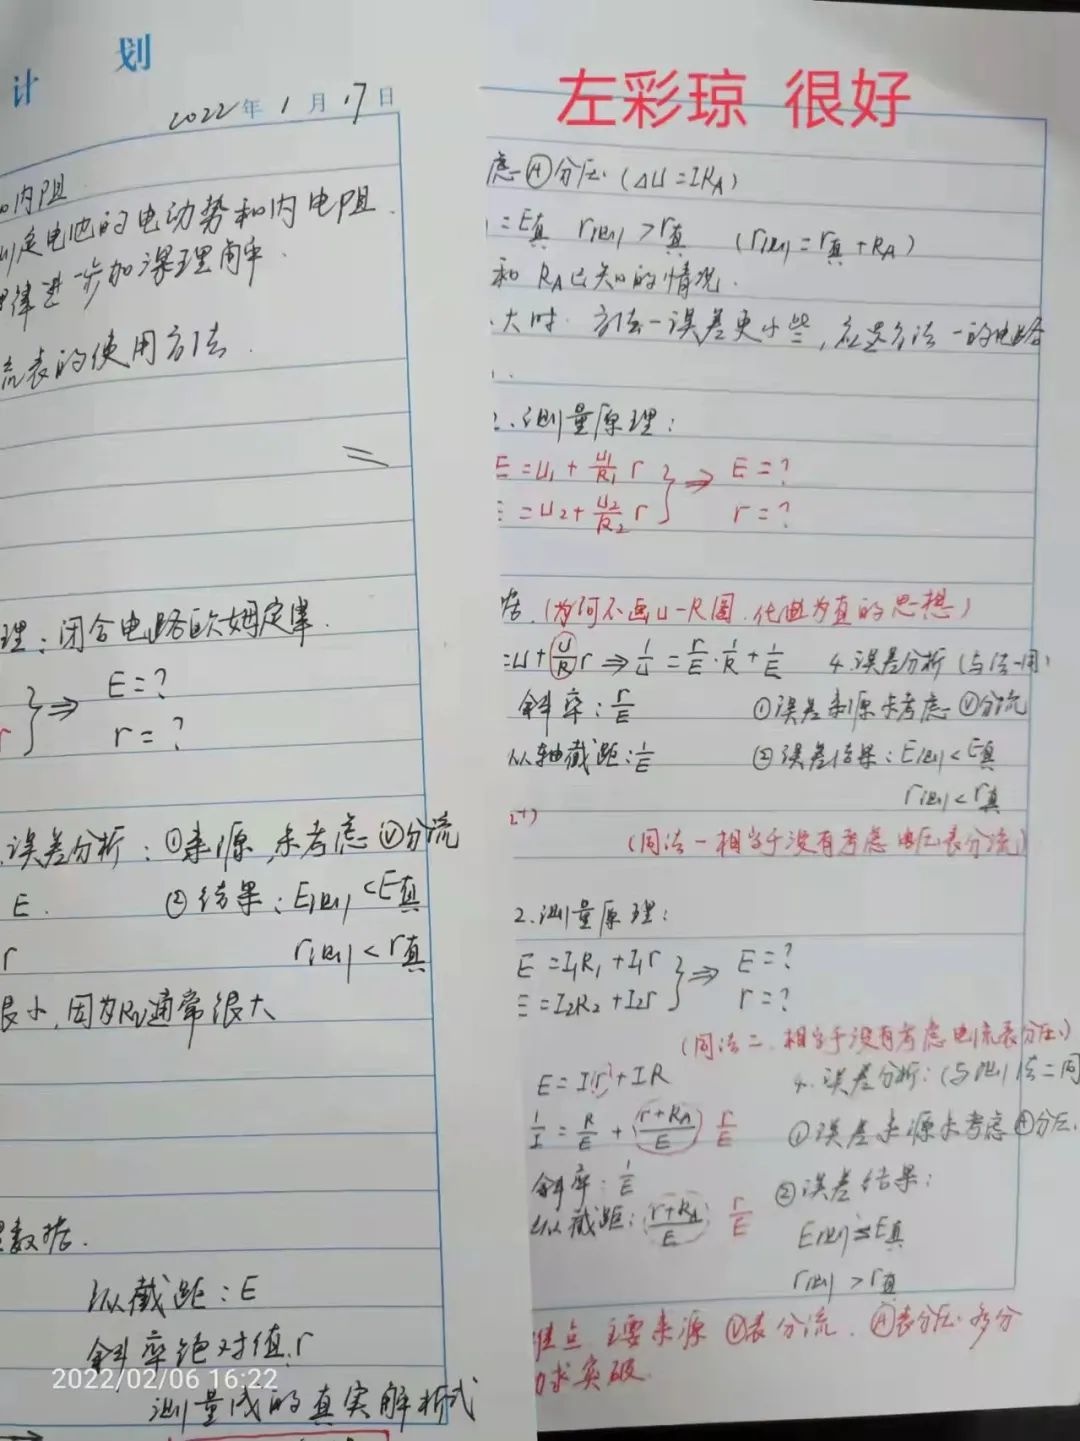 计 划
2022年1月17日
和内阻
测定电池的电动势和内电阻.
律进一步加深理解.
流表的使用方法.
理:闭合电路欧姆定律.
r } ⇒ E=?
r=?
误差分析:①来源,未考虑Ⓥ分流
E. ②结果:E测<E真
r r测<r真
很小,因为Rv通常很大
数据.
纵截距:E
斜率绝对值:r
2022/02/06 16:22
测量成的真实解析式
左彩琼 很好
虑Ⓐ分压.(ΔU=IRA)
=E真 r测>r真 (r测=r真+RA)
和RA已知的情况.
大时.方法一误差更小些,应选方法一的电路
2.测量原理:
E=U₁+U₁/R₁ r } ⇒ E=?
E=U₂+U₂/R₂ r r=?
据.(为何不画U-R图.化曲为直的思想)
=U+U/R r ⇒ 1/U=r/E·1/R+1/E 4.误差分析(与法一同)
斜率:r/E ①误差来源未考虑Ⓥ分流
纵轴截距:1/E ②误差结果:E测<E真
r测<r真
(同法一相当于没有考虑电压表分流)
2.测量原理:
E=I₁R₁+I₁r } ⇒ E=?
E=I₂R₂+I₂r r=?
(同法二.相当于没有考虑电流表分压.)
E=Ir+IR 4.误差分析:(与测法二同
1/I=R/E+(r+RA)/E r/E ①误差来源未考虑Ⓐ分压.
斜率:1/E ②误差结果:
纵截距:(r+RA)/E r/E E测=E真
r测>r真
难点 主要来源 Ⓥ表分流.Ⓐ表分压.多分
力求突破.